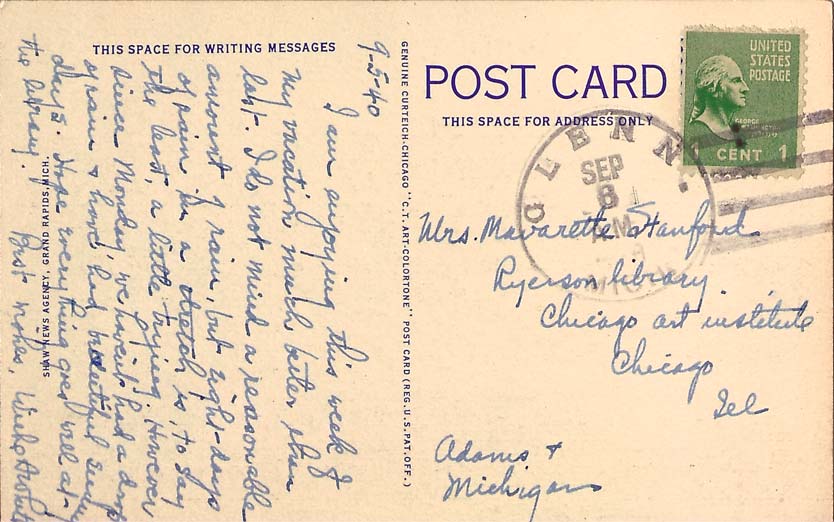 THIS SPACE FOR WRITING MESSAGES
9-5-40
I am enjoying this week of
my vacation much better than
last. I do not mind a reasonable
amount of rain, but eight days
of rain in a stretch is, to say
the least, a little trying. However
since Monday, we haven't had a drop
of rain & have had beautiful sunny
days. Hope everything goes well at
the library. Best wishes,
SHAW NEWS AGENCY, GRAND RAPIDS, MICH.
GENUINE CURTEICH-CHICAGO "C.T. ART-COLORTONE" POST CARD (REG. U.S. PAT. OFF.)
POST CARD
THIS SPACE FOR ADDRESS ONLY
UNITED
STATES
POSTAGE
GEORGE
WASHINGTON
1 CENT 1
GLENN
SEP
6
AM
MICH.
Mrs. Mavarette Stanford
Ryerson library
Chicago art institute
Chicago
Ill
Adams &
Michigan